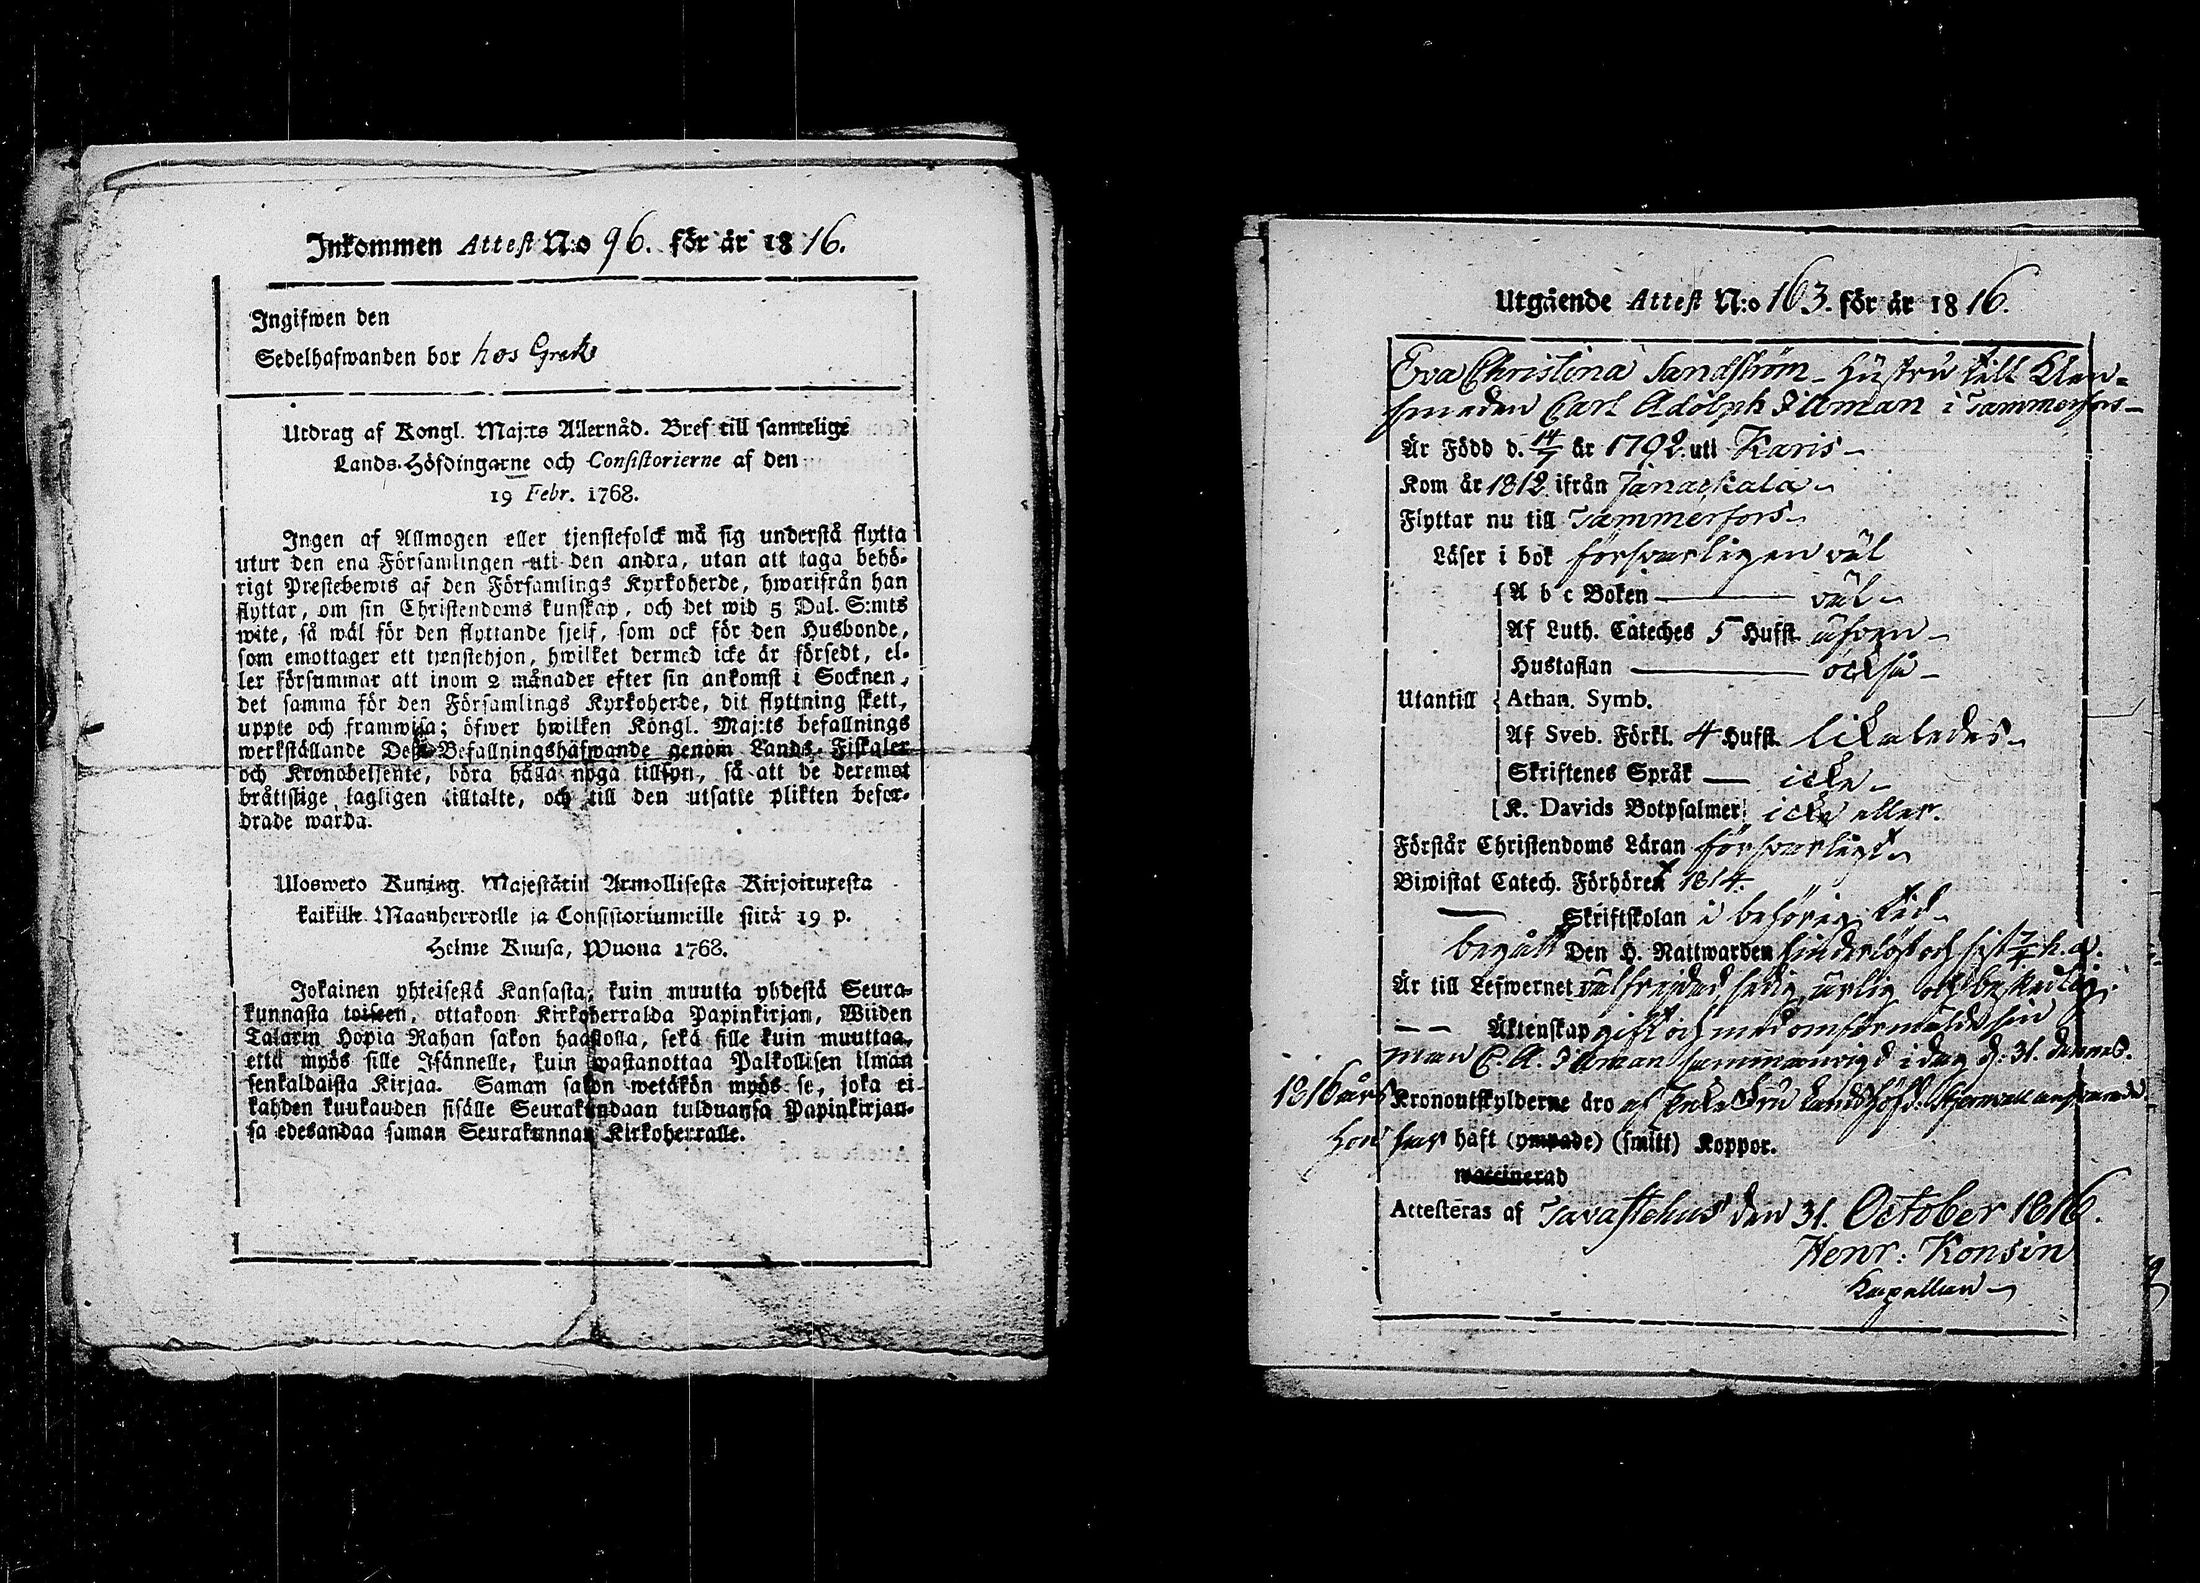 Inkommen Attest N:o 96. för år 1816.
Ingifwen den
Sedelhafwanden bor hos Grek
Utdrag af Kongl. Maj:ts Allernåd. Bref till samtelige
Lands-Höfdingarne och Consistorierne af den
19 Febr. 1768.
Ingen af Allmogen eller tjenstefolck må sig understå flytta
utur den ena Församlingen uti den andra, utan att taga behö-
rigt Prestebewis af den Församlings Kyrkoherde, hwarifrån han
flyttar, om sin Christendoms kunskap, och det wid 5 Dal. S:mts
wite, så wäl för den flyttande sjelf, som ock för den Husbonde,
som emottager ett tjenstehjon, hwilket dermed icke är försedt, el-
ler försummar att inom 2 månader efter sin ankomst i Socknen,
det samma för den Församlings Kyrkoherde, dit flyttning skett,
uppte och framwisa; öfwer hwilken Kongl. Maj:ts befallnings
werkställande Deß Befallningshafwande genom Lands-Fiskaler
och Kronobetjente, böra hålla noga tillsyn, så att de deremot
bråttslige lagligen tilltalte, och till den utsatte plikten befor-
drade warda.
Ulosweto Kuning. Majestätin Armollisesta Kirjoituxesta
kaikille Maanherroille ja Consistoriumeille siitä 19 p.
Helme Kuusa, Wuona 1768.
Jokainen yhteisestä Kansasta, kuin muutta yhdestä Seura-
kunnasta toiseen, ottakoon Kirkoherralda Papinkirjan, Wiiden
Talarin Hopia Rahan sakon haastolla, sekä sille kuin muuttaa,
että myös sille Isännelle, kuin wastanottaa Palkollisen ilman
senkaldaista Kirjaa. Saman sakon wetäkön myös se, joka ei
kahden kuukauden sisälle Seurakundaan tulduansa Papinkirjan-
sa edesandaa saman Seurakunnan Kirkoherralle.
Utgående Attest N:o 163. för år 1816.
Eva Christina Sandström – Hustru till Klen-
smeden Carl Adolph Illman i Tammerfors –
Är Född d. 14/7 år 1792. uti Karis –
Kom år 1812. ifrån Janackala –
Flyttar nu till Tammerfors –
Läser i bok försvarligen väl
A b c Boken väl –
Af Luth. Cateches 5 Hufst. äfven –
Hustaflan också –
Utantill Athan. Symb.
Af Sveb. Förkl. 4 Hufst. likaledes –
Skriftenes Språk icke –
K. Davids Botpsalmer icke eller.
Förstår Christendoms Läran försvarligt –
Biwistat Catech. Förhören 1814.
Skriftskolan i behörig tid –
begått Den H. Nattwarden hinderlöst och sist 7/7 h. a.
Är till Lefwernet välfrejdad, sedig, ärlig och beskedlig.
Äktenskap gift och med omförmälde sin
man C. A. Illman sammanvigd i dag d. 31. dennes.
1816 års Kronoutskylderne äro af Enke Fru Landshöfd.
Hon har haft (ympade) (smitt) Koppor.
waccinerad
Attesteras af Tavastehus den 31. October 1816.
Henr: Konsin
Kapellan –